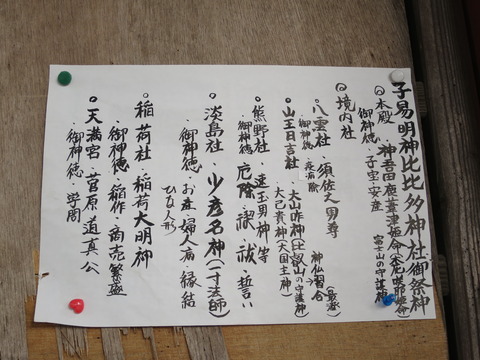 子易明神比比多神社御祭神
◎本殿・神吾田鹿葦津姫命(木花咲耶姫命)
富士山の守護神
御神徳・子宝・安産
◎境内社
○八雲社・須佐之男尊
御神徳・疫病除
神仏習合
○山王日吉社・大山咋神(比叡山の守護神)
大己貴神(大国主神)
○熊野社・速玉男神等
御神徳 厄除・禊・祓・誓い
○淡島社・少彦名神(一寸法師)
・御神徳・お産・婦人病・縁結
ひな人形
○稲荷社・稲荷大明神
・御神徳・稲作・商売繁盛
○天満宮・菅原道真公
・御神徳・学問